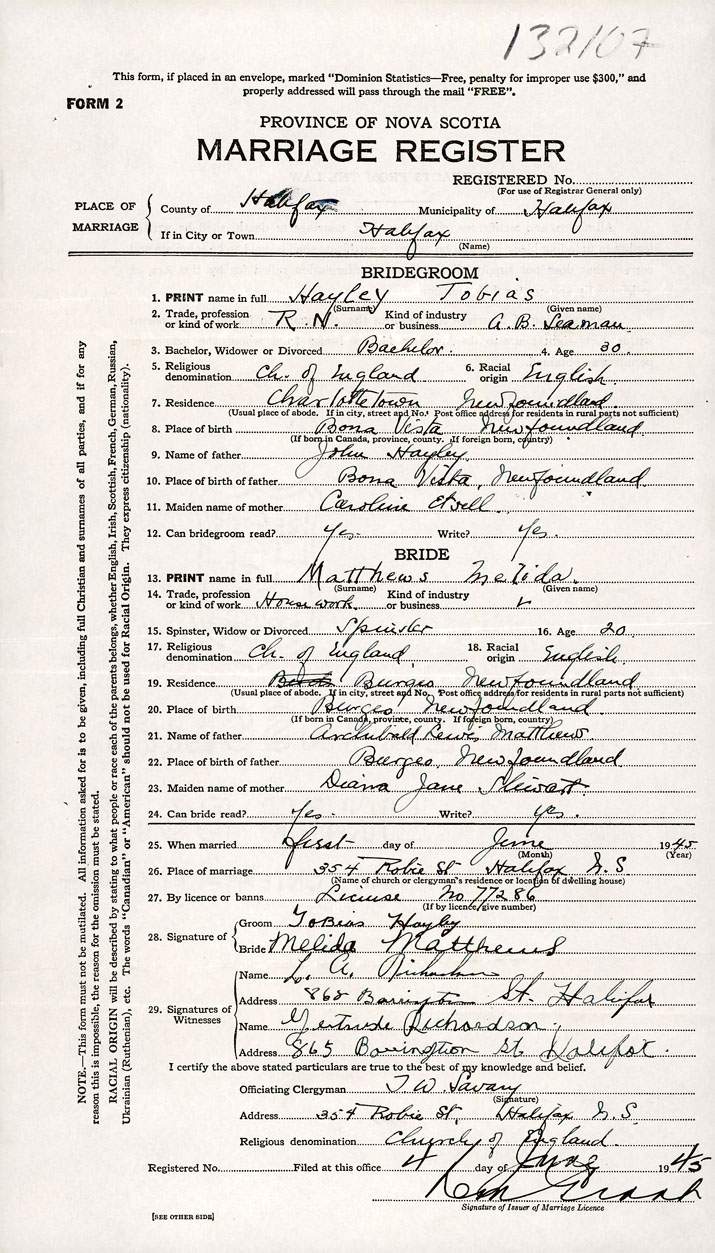 132107
This form, if placed in an envelope, marked "Dominion Statistics—Free, penalty for improper use $300," and
properly addressed will pass through the mail "FREE".
FORM 2
PROVINCE OF NOVA SCOTIA
MARRIAGE REGISTER
REGISTERED No.
(For use of Registrar General only)
PLACE OF MARRIAGE
County of Halifax Municipality of Halifax
If in City or Town Halifax
(Name)
BRIDEGROOM
1. PRINT name in full Hayley Tobias
(Surname) (Given name)
2. Trade, profession or kind of work R.N. Kind of industry or business A.B. Seaman
3. Bachelor, Widower or Divorced Bachelor. 4. Age 30.
5. Religious denomination Ch. of England 6. Racial origin English.
7. Residence Charlottetown Newfoundland.
(Usual place of abode. If in city, street and No. Post office address for residents in rural parts not sufficient)
8. Place of birth Bona Vista Newfoundland
(If born in Canada, province, county. If foreign born, country)
9. Name of father John Hayley
10. Place of birth of father Bona Vista, Newfoundland.
11. Maiden name of mother Caroline
12. Can bridegroom read? Yes. Write? Yes.
BRIDE
13. PRINT name in full Matthews Melida.
(Surname) (Given name)
14. Trade, profession or kind of work Housework. Kind of industry or business
15. Spinster, Widow or Divorced Spinster 16. Age 20.
17. Religious denomination Ch. of England 18. Racial origin English.
19. Residence Burgeo Newfoundland
(Usual place of abode. If in city, street and No. Post office address for residents in rural parts not sufficient)
20. Place of birth Burgeo Newfoundland
(If born in Canada, province, county. If foreign born, country)
21. Name of father Archibald Lewis Matthews
22. Place of birth of father Burgeo, Newfoundland
23. Maiden name of mother Diana Jane Stewart.
24. Can bride read? Yes. Write? Yes.
25. When married first day of June 1945
(Month) (Year)
26. Place of marriage 354 Robie St Halifax N.S
(Name of church or clergyman's residence or location of dwelling house)
27. By licence or banns License No 77286
(If by licence, give number)
28. Signature of
Groom Tobias Hayley
Bride Melida Matthews
29. Signatures of Witnesses
Name L. A.
Address 868 Barrington St. Halifax
Name Gertrude Richardson.
Address 865 Barrington St Halifax.
I certify the above stated particulars are true to the best of my knowledge and belief.
Officiating Clergyman T. W. Savary
(Signature)
Address 354 Robie St, Halifax N.S.
Religious denomination Church of England.
Registered No. Filed at this office 4 day of June 1945
Signature of Issuer of Marriage Licence
[SEE OTHER SIDE]
NOTE.—This form must not be mutilated. All information asked for is to be given, including full Christian and surnames of all parties, and if for any
reason this is impossible, the reason for the omission must be stated.
RACIAL ORIGIN will be described by stating to what people or race each of the parents belongs, whether English, Irish, Scottish, French, German, Russian,
Ukrainian (Ruthenian), etc. The words "Canadian" or "American" should not be used for Racial Origin. They express citizenship (nationality).